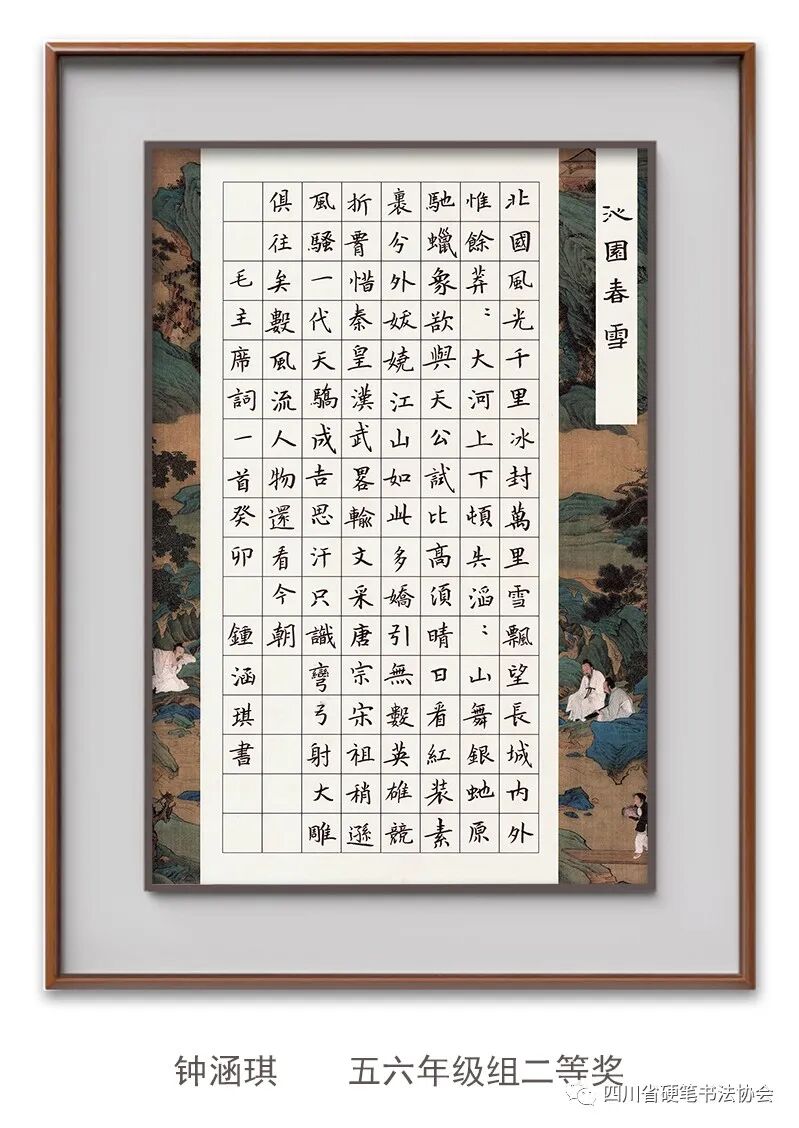 沁園春雪
北國風光千里冰封萬里雪飄望長城内外
惟餘莽：大河上下頓失滔：山舞銀虵原
馳蠟象欲與天公試比高須晴日看紅装素
裹兮外妖嬈江山如此多嬌引無數英雄競
折腰惜秦皇漢武畧輸文采唐宗宋祖稍遜
風騷一代天驕成吉思汗只識彎弓射大雕
俱往矣數風流人物還看今朝
毛主席詞一首癸卯 鍾涵琪書
钟涵琪 五六年级组二等奖
四川省硬笔书法协会